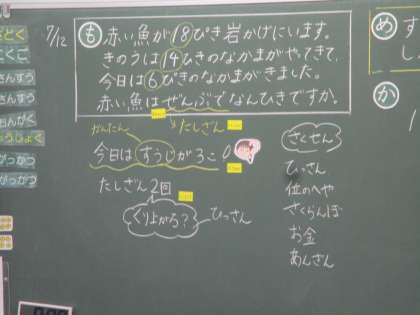 7/12
も
赤い魚が18ぴき岩かげにいます。
きのうは14ひきのなかまがやってきて、
今日は6ぴきのなかまがきました。
赤い魚はぜんぶでなんひきですか。
たしざん
かんたん
今日はすうじが3こ
たしざん2回
くりょがる?
ひっさん
さくせん
ひっさん
位のへや
さくらんぼ
お金
あんざん
め
か
こくご
さんすう
さんすう
おんがく
がっかつ
がっかつ